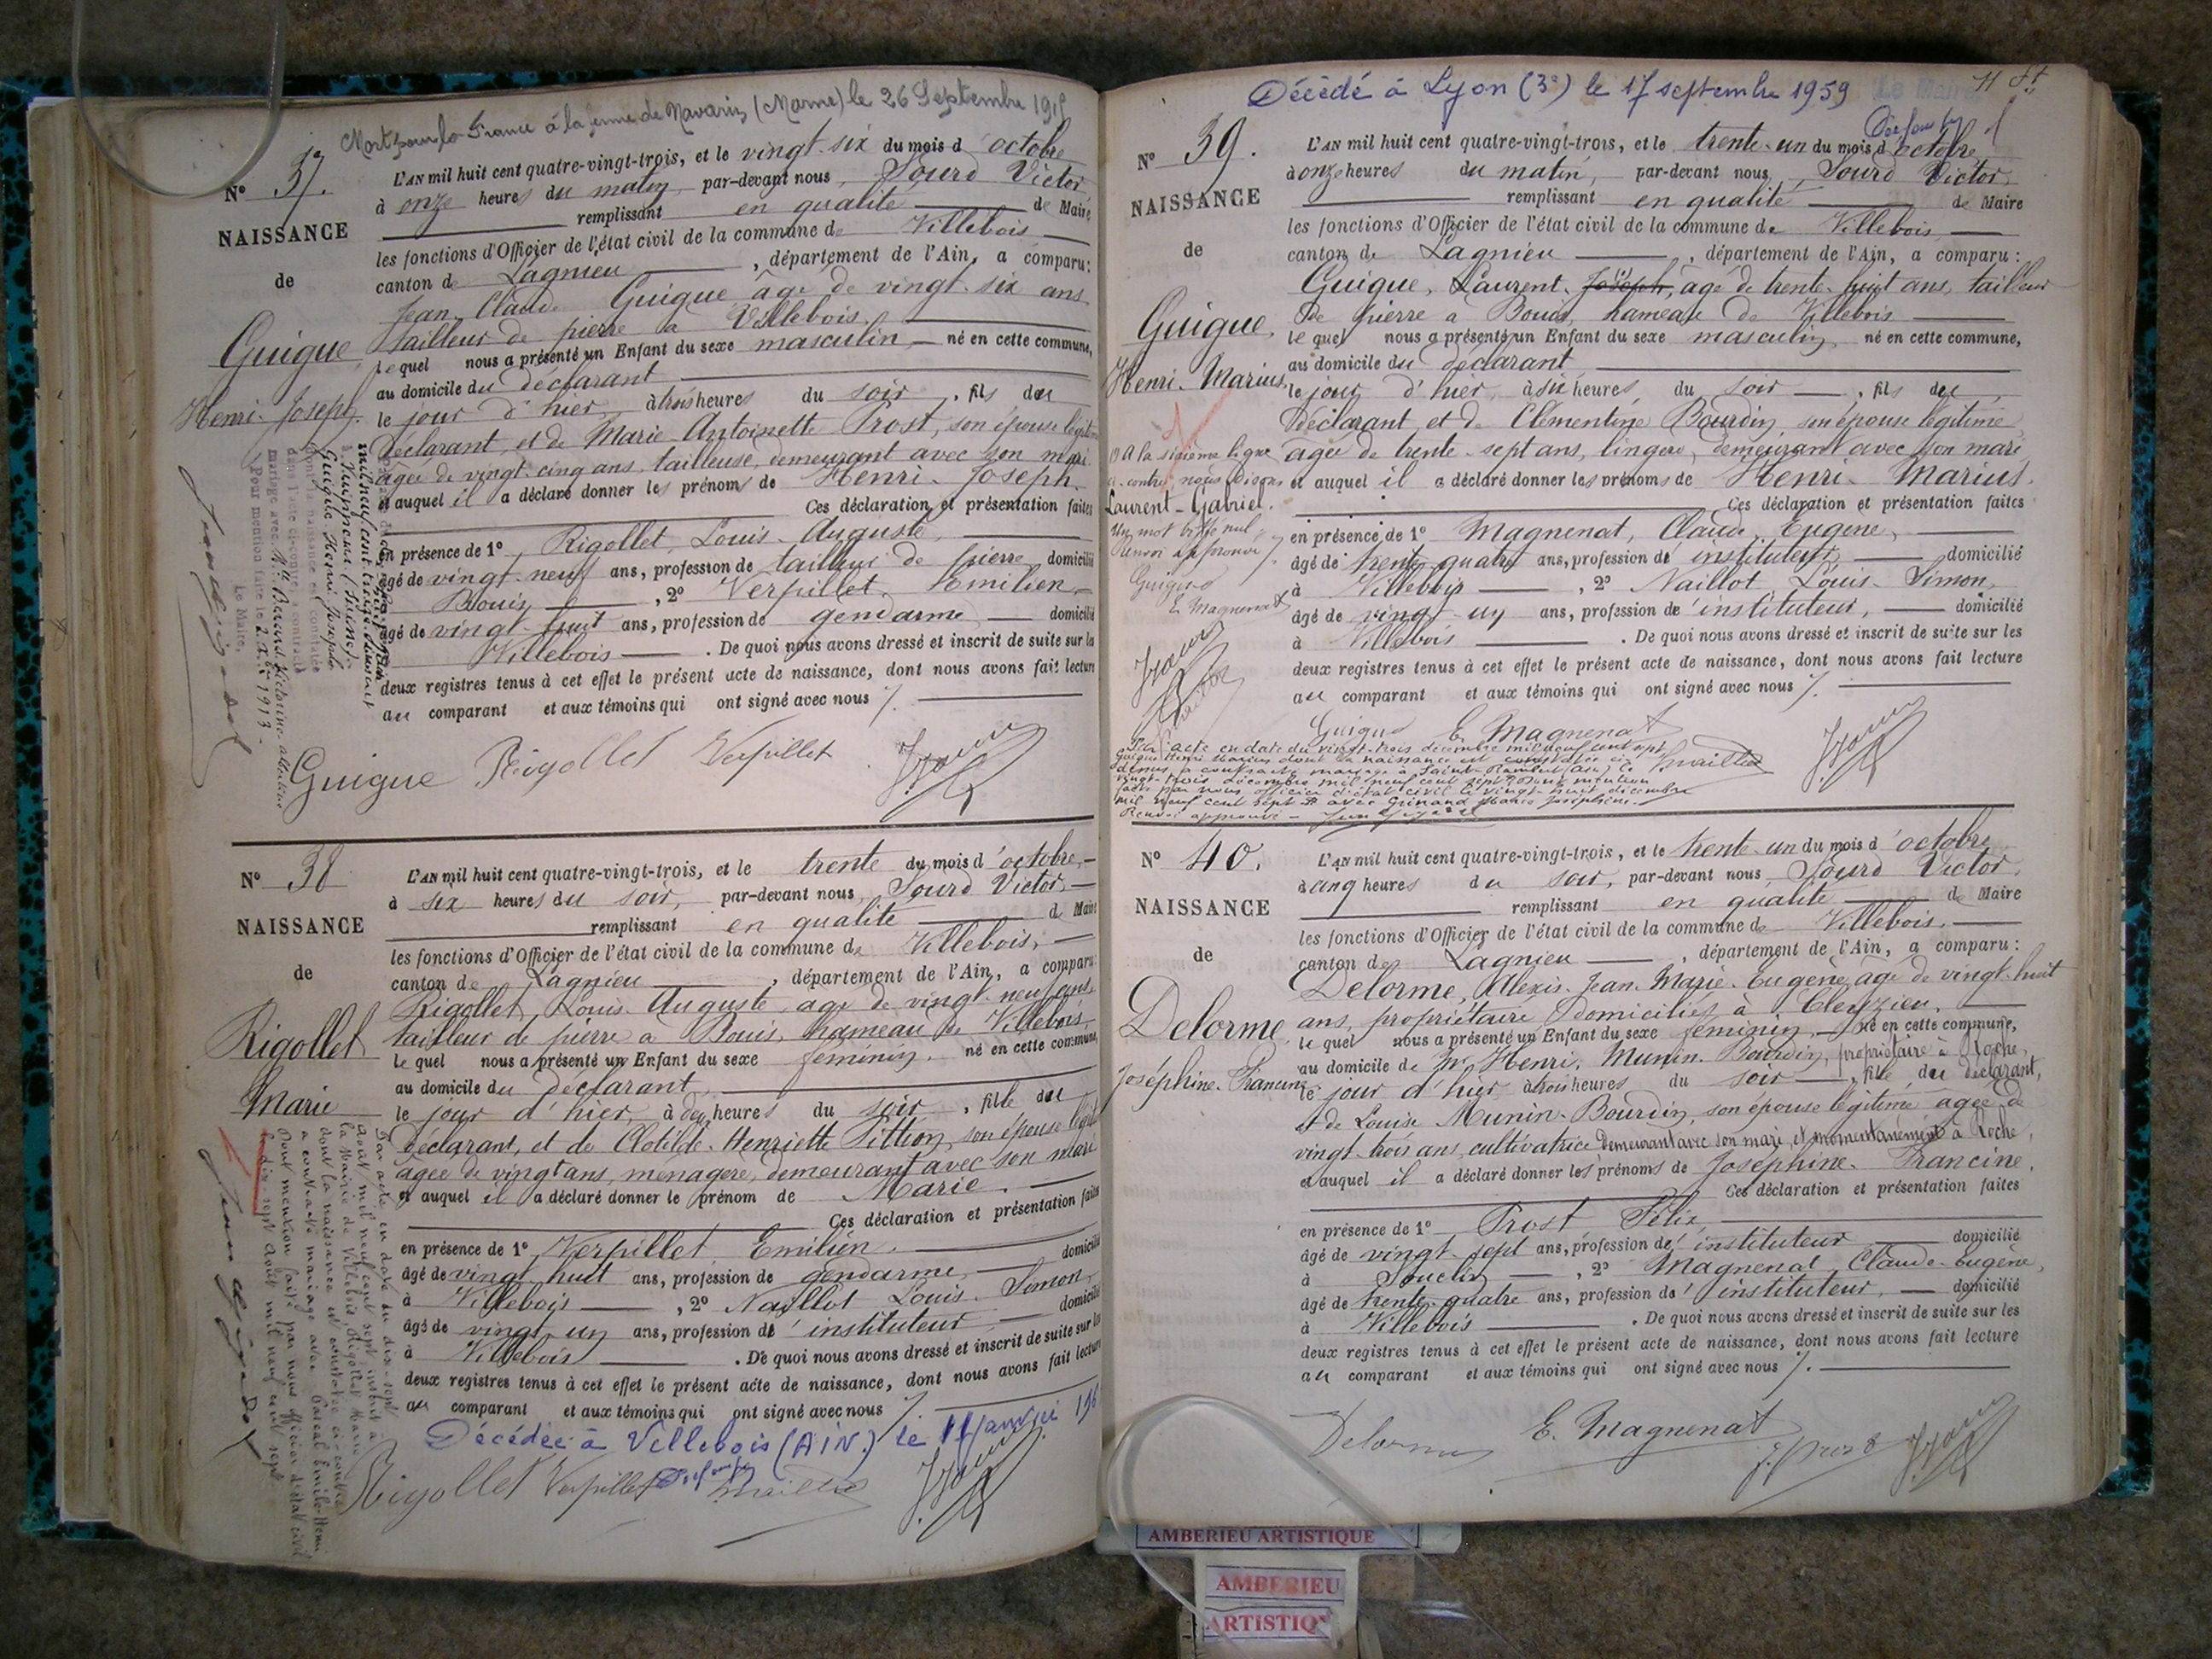 Mort pour la France à la ferme de Navarin (Marne) le 26 Septembre 191
N° 37.
NAISSANCE
de
Guigue
Henri-Joseph.
L'AN mil huit cent quatre-vingt-trois, et le vingt-six du mois d'octobre
à onze heures du matin, par-devant nous, Sourd Victor
remplissant en qualité de Maire
les fonctions d'Officier de l'état civil de la commune de Villebois
canton de Lagnieu, département de l'Ain, a comparu:
Jean-Claude Guigue âgé de vingt-six ans
tailleur de pierre à Villebois.
lequel nous a présenté un Enfant du sexe masculin, né en cette commune,
au domicile du déclarant
le jour d'hier, à trois heures du soir, fils du
déclarant, et de Marie Antoinette Prost, son épouse légitime
âgée de vingt-cinq ans, tailleuse, demeurant avec son mari
et auquel il a déclaré donner les prénoms de Henri-Joseph.
Ces déclaration et présentation faites
en présence de 1° Rigollet, Louis-Auguste,
âgé de vingt-neuf ans, profession de tailleur de pierre domicilié
à Bouis, 2° Verpillet Emilien
âgé de vingt-huit ans, profession de gendarme domicilié
à Villebois. De quoi nous avons dressé et inscrit de suite sur les
deux registres tenus à cet effet le présent acte de naissance, dont nous avons fait lecture
au comparant et aux témoins qui ont signé avec nous
Guigue Rigollet Verpillet
mil neuf cent treize, devant
Guigue Henri Joseph
dont la naissance est constatée
dans l'acte ci-contre a contracté
mariage avec
Pour mention faite le 1913
Le Maire,
N° 38
NAISSANCE
de
Rigollet
Marie
L'AN mil huit cent quatre-vingt-trois, et le trente du mois d'octobre,
à six heures du soir, par-devant nous, Sourd Victor,
remplissant en qualité de Maire
les fonctions d'Officier de l'état civil de la commune de Villebois,
canton de Lagnieu, département de l'Ain, a comparu:
Rigollet, Louis-Auguste, âgé de vingt-neuf ans
tailleur de pierre à Bouis, hameau de Villebois,
lequel nous a présenté un Enfant du sexe féminin, né en cette commune,
au domicile du déclarant,
le jour d'hier, à deux heures du soir, fille du
déclarant, et de Clotilde-Henriette Pittion, son épouse légitime
âgée de vingt ans, ménagère, demeurant avec son mari
et auquel il a déclaré donner le prénom de Marie.
Ces déclaration et présentation faites
en présence de 1° Verpillet Emilien.
âgé de vingt-huit ans, profession de gendarme, domicilié
à Villebois, 2° Naillot Louis-Simon,
âgé de vingt-un ans, profession d'instituteur domicilié
à Villebois. De quoi nous avons dressé et inscrit de suite sur les
deux registres tenus à cet effet le présent acte de naissance, dont nous avons fait lecture
au comparant et aux témoins qui ont signé avec nous
Décédée à Villebois (AIN.) le 11 janvier 196
Rigollet Verpillet Naillot
Par acte en date du dix-sept
août mil neuf cent sept inscrit à
la Mairie de Villebois, Rigollet Marie
dont la naissance est constatée ci-contre
a contracté mariage avec Pascal Emile-Henri
Dont mention faite par nous officier d'état civil
le dix-sept août mil neuf cent sept
Décédé à Lyon (3e) le 17 septembre 1959
Le Maire
N° 39.
NAISSANCE
de
Guigue.
Henri-Marius.
L'AN mil huit cent quatre-vingt-trois, et le trente-un du mois d'octobre
à onze heures du matin, par-devant nous, Sourd Victor,
remplissant en qualité de Maire
les fonctions d'Officier de l'état civil de la commune de Villebois,
canton de Lagnieu, département de l'Ain, a comparu:
Guigue, Laurent-Joseph, âgé de trente-huit ans, tailleur
de pierre à Bouis, hameau de Villebois
lequel nous a présenté un Enfant du sexe masculin, né en cette commune,
au domicile du déclarant
le jour d'hier, à six heures, du soir, fils du
déclarant et de Clémentine Bourdin, son épouse légitime,
âgée de trente-sept ans, lingère, demeurant avec son mari
et auquel il a déclaré donner les prénoms de Henri-Marius.
Ces déclaration et présentation faites
en présence de 1° Magnenat, Claude-Eugène,
âgé de trente-quatre ans, profession d'instituteur, domicilié
à Villebois, 2° Naillot Louis-Simon,
âgé de vingt-un ans, profession d'instituteur, domicilié
à Villebois. De quoi nous avons dressé et inscrit de suite sur les
deux registres tenus à cet effet le présent acte de naissance, dont nous avons fait lecture
au comparant et aux témoins qui ont signé avec nous
A la sixième ligne
ci-contre, nous disons
Laurent-Gabriel.
Un mot biffé nul.
Renvoi approuvé
Guigue
E. Magnenat
Guigue E. Magnenat
Naillot
Par acte en date du vingt-trois décembre mil neuf cent sept
Guigue Henri Marius dont la naissance est constatée ci-
dessus a contracté mariage à Saint-Rambert (Ain) le
vingt-trois décembre mil neuf cent sept Dont mention
faite par nous officier d'état civil le vingt-huit décembre
mil neuf cent sept avec Guinand Marie Joséphine.
Renvoi approuvé
N° 40.
NAISSANCE
de
Delorme
Joséphine-Francine
L'AN mil huit cent quatre-vingt-trois, et le trente-un du mois d'octobre
à cinq heures du soir, par-devant nous, Sourd Victor,
remplissant en qualité de Maire
les fonctions d'Officier de l'état civil de la commune de Villebois,
canton de Lagnieu, département de l'Ain, a comparu:
Delorme, Alexis-Jean-Marie-Eugène, âgé de vingt-huit
ans, propriétaire domicilié à
lequel nous a présenté un Enfant du sexe féminin, né en cette commune,
au domicile de Mr Henri, Munin-Bourdin, propriétaire à Roche,
le jour d'hier à trois heures du soir, fille du déclarant,
et de Louise Munin-Bourdin, son épouse légitime âgée de
vingt-trois ans, cultivatrice demeurant avec son mari, et momentanément à Roche,
et auquel il a déclaré donner les prénoms de Joséphine-Francine.
Ces déclaration et présentation faites
en présence de 1° Prost Félix,
âgé de vingt-sept ans, profession d'instituteur domicilié
à Souclin, 2° Magnenat, Claude-Eugène,
âgé de trente-quatre ans, profession d'instituteur, domicilié
à Villebois. De quoi nous avons dressé et inscrit de suite sur les
deux registres tenus à cet effet le présent acte de naissance, dont nous avons fait lecture
au comparant et aux témoins qui ont signé avec nous
Delorme E. Magnenat
AMBERIEU ARTISTIQUE
AMBERIEU
ARTISTIQ